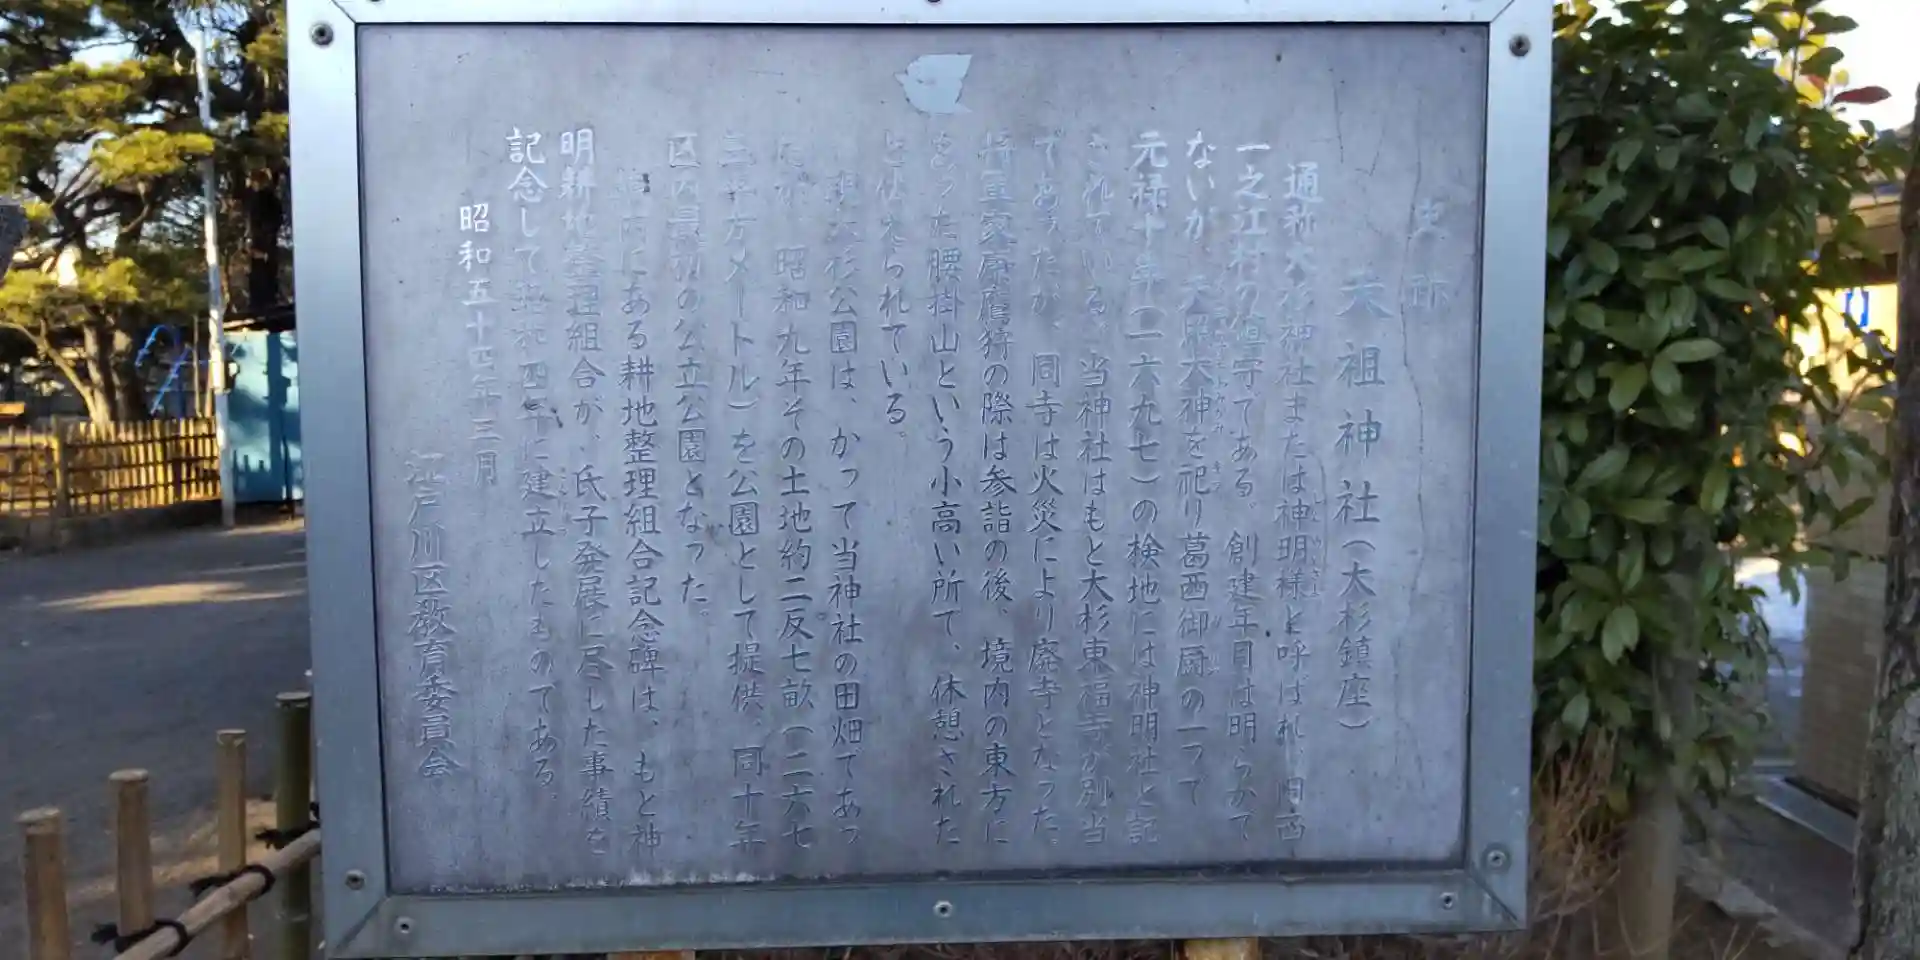 史跡
天祖神社（大杉鎮座）
通称大杉神社または神明様と呼ばれ、旧西
一之江村の鎮守である。創建年月は明らかで
ないが、天照大神を祀り葛西御厨の一つで
元禄十年（一六九七）の検地には神明社と記
されている。当神社はもと大杉東福寺が別当
であったが、同寺は火災により廃寺となった。
将軍家鷹狩の際は参詣の後、境内の東方に
あった腰掛山という小高い所で、休憩された
と伝えられている。
現大杉公園は、かつて当神社の田畑であっ
たが、昭和九年その土地約二反七畝（二六七
三平方メートル）を公園として提供、同十年
区内最初の公立公園となった。
境内にある耕地整理組合記念碑は、もと神
明耕地整理組合が、氏子発展に尽した事績を
記念して昭和四年に建立したものである。
昭和五十四年三月
江戸川区教育委員会